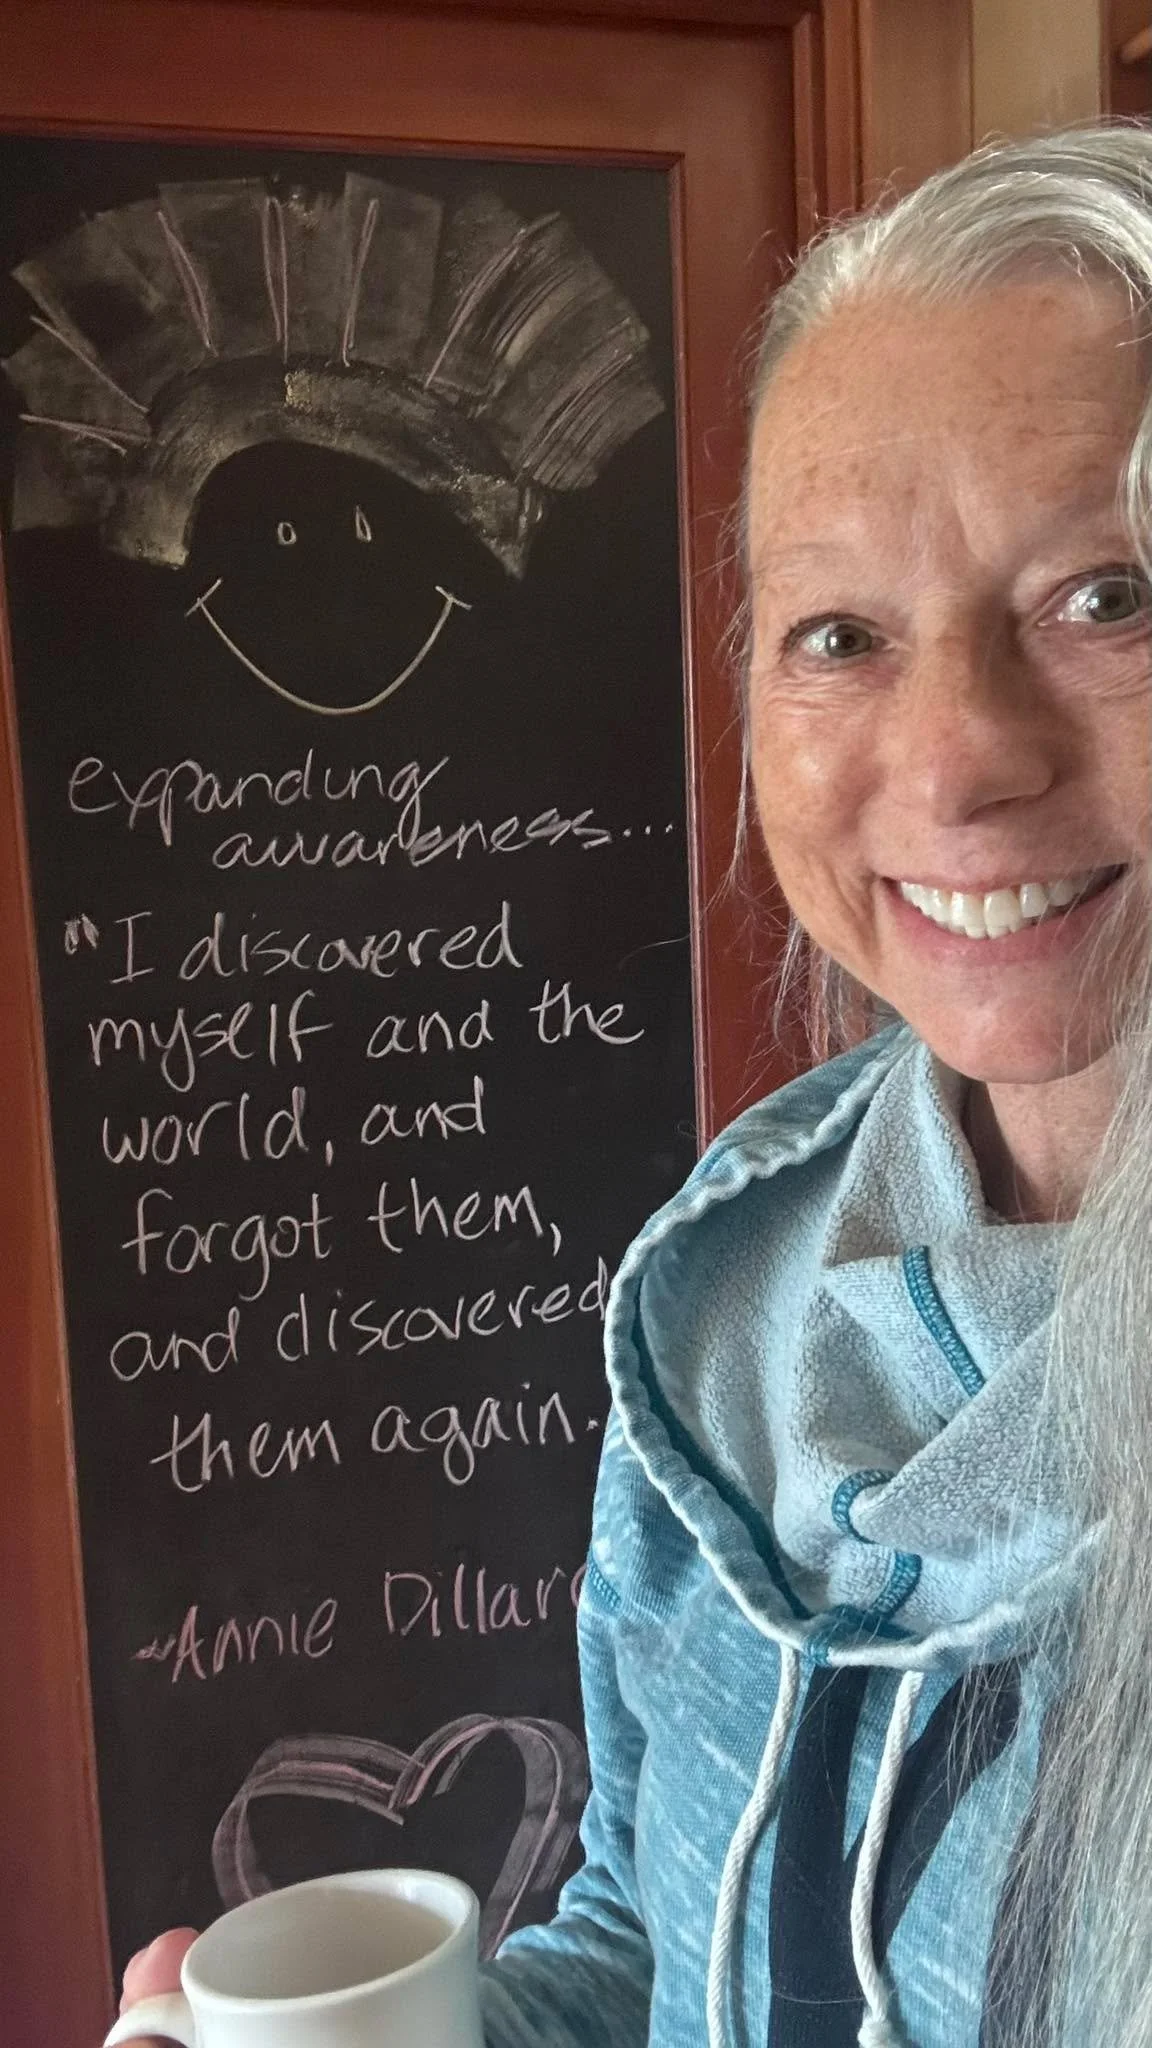 expanding
awareness...
"I discovered
myself and the
world, and
forgot them,
and discovered
them again.
~Annie Dillard